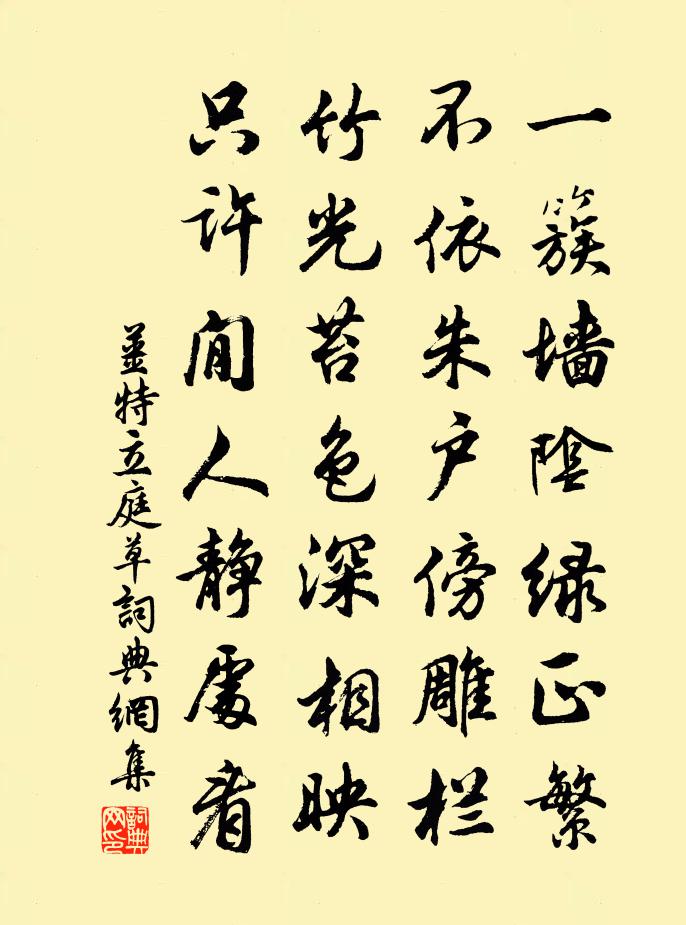 一簇墙陰绿正繁
不依朱户傍雕栏
竹光苔色深相映
只许闲人静處看
姜特立庭草詞典網集
詞典网印